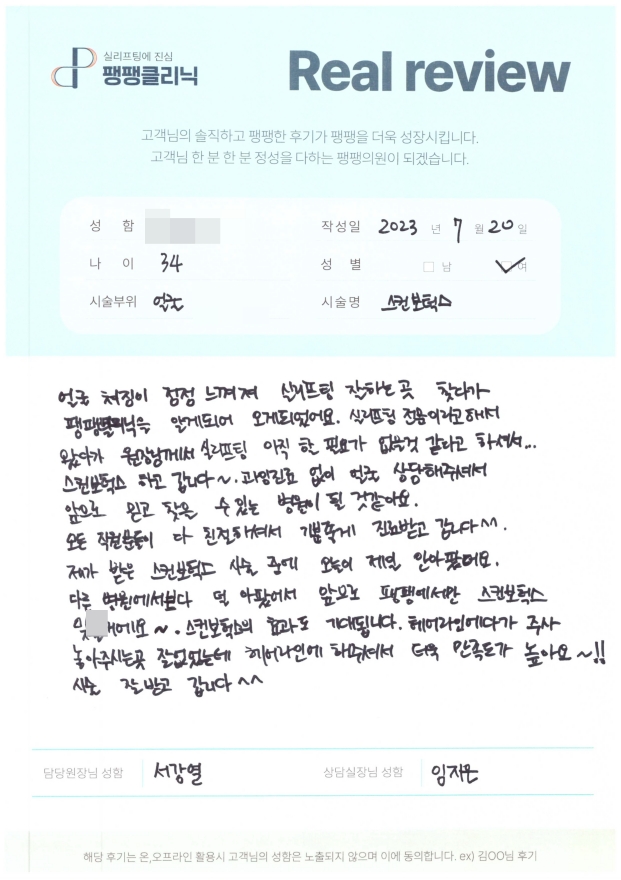 실리프팅에 진심
팽팽클리닉
Real review
고객님의 솔직하고 팽팽한 후기가 팽팽을 더욱 성장시킵니다.
고객님 한 분 한 분 정성을 다하는 팽팽의원이 되겠습니다.
성 함 작성일 2023 년 7 월 20 일
나 이 34 성 별 남 여
시술부위 얼굴 시술명 스킨보톡스
얼굴 처짐이 점점 느껴져 실리프팅 잘하는곳 찾다가
팽팽클리닉을 알게되어 오게되었어요. 실리프팅 전문이라고해서
왔다가 원장님께서 실리프팅 아직 할 필요가 없을것 같다고 하셔서...
스킨보톡스 하고 갑니다~. 과잉진료 없이 얼굴 상담해주셔서
앞으로 믿고 찾을 수 있는 병원이 될 것같아요.
모든 직원분들이 다 친절하셔서 기분좋게 진료받고 갑니다^^.
제가 받은 스킨보톡스 시술 중에 오늘이 제일 안아팠어요.
다른 병원에서보다 덜 아팠어서 앞으로 팽팽에서만 스킨보톡스
~. 스킨보톡스의 효과도 기대됩니다. 헤어라인에다가 주사
놓아주시는곳 잘없었는데 헤어라인에 해주셔서 더욱 만족도가 높아요~!!
시술 잘받고 갑니다^^
담당원장님 성함 서강열 상담실장님 성함 임지은
해당 후기는 온,오프라인 활용시 고객님의 성함은 노출되지 않으며 이에 동의합니다. ex) 김OO님 후기